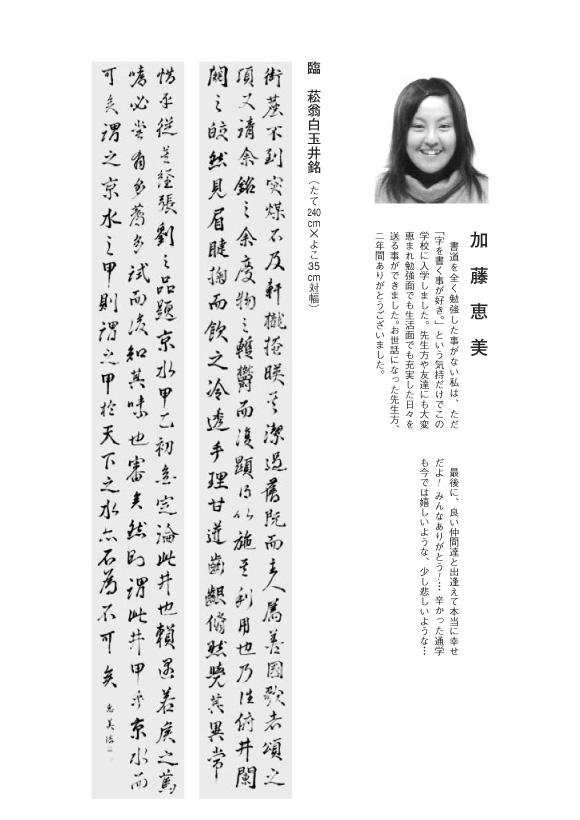 加藤恵美
書道を全く勉強した事がない私は、ただ
「字を書く事が好き。」という気持だけでこの
学校に入学しました。先生方や友達にも大変
恵まれ勉強面でも生活面でも充実した日々を
送る事ができました。お世話になった先生方、
二年間ありがとうございました。
最後に、良い仲間達と出逢えて本当に幸せ
だよ！みんなありがとう！…辛かった通学
も今では嬉しいような、少し悲しいような…
臨 菘翁白玉井銘（たて240cm×よこ35cm対幅）
街塵不到突煤不及軒櫳掩映其潔過舊既而主人属善國歌者頌之
項又請余銘之余度物之韞欝而後顕以施其利用也乃往俯井闌
闚之皎然見眉睫掬而飲之冷透手理甘逬齒齦翛然覺其異常
惜乎從張劉之品題京水甲乙初無定論此井也頼遇若侯之篤
嗜必試而後知其味也審矣然則謂此井甲乎京水而
可矣謂之京水之甲則謂之甲於天下之水亦不為不可矣
恵美臨